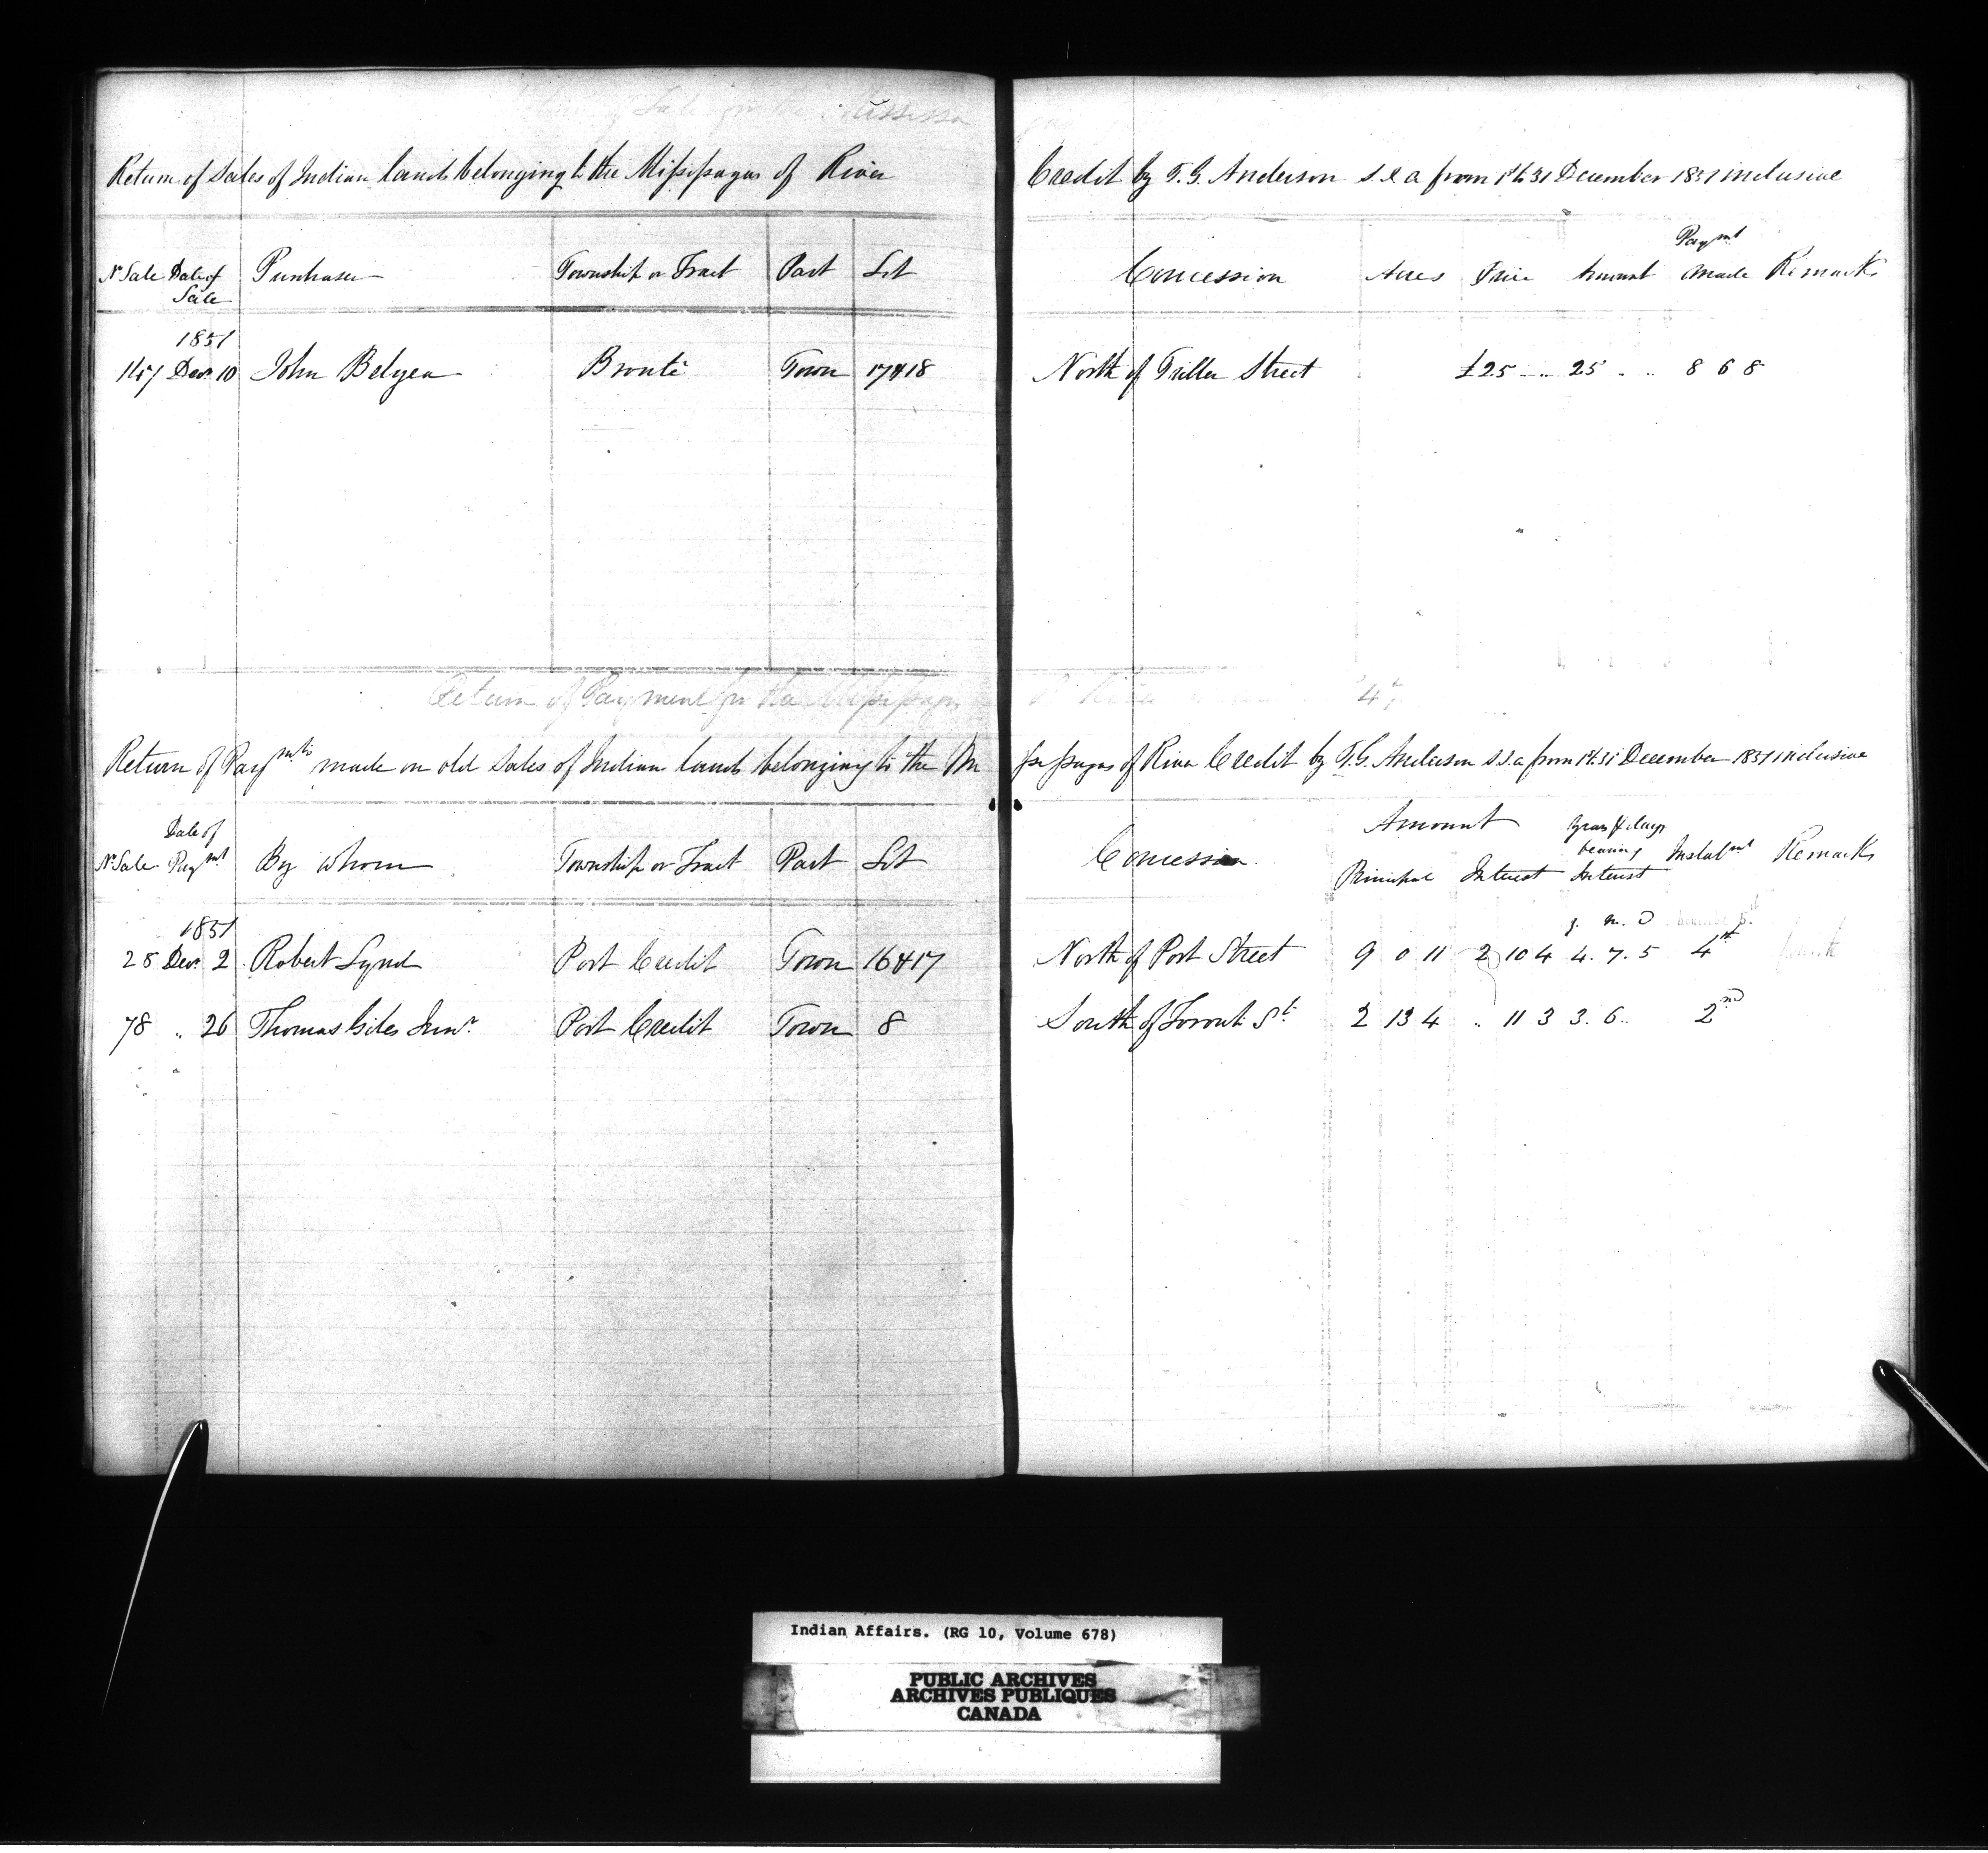 Return of Sales of Indian Lands belonging to the Missisagas of River Credit by T. G. Anderson S.I.A from 1st to 31 December 1851 inclusive
No Sale Date of Sale Purchaser Township or Tract Part Lot Concession Acres Price Amount Paymt made Remarks
1851
Decr 10 John Belyea Bronte Town 17 & 18 North of Triller Street £25 " " 25 " " 8 6 8
Return of Payment for the Missisagas
Return of Paymts made on old Sales of Indian Lands belonging to the Missisagas of River Credit by T. G. Anderson S.I.A from 1st to 31 December 1851 inclusive
No Sale Date of Paymt By whom Township or Tract Part Lot Concession Amount Principal Interest Years & days bearing Interest Instalmt Remarks
1851 y. m. D
28 Decr 2 Robert Lynd Port Credit Town 16 & 17 North of Port Street 9 0 11 2 10 4 4. 7. 5 4th
78 " 26 Thomas Giles Junr Port Credit Town 8 South of Toronto St 2 13 4 " 11 3 3. 6.. 2nd
Indian Affairs. (RG 10, Volume 678)
PUBLIC ARCHIVES
ARCHIVES PUBLIQUES
CANADA